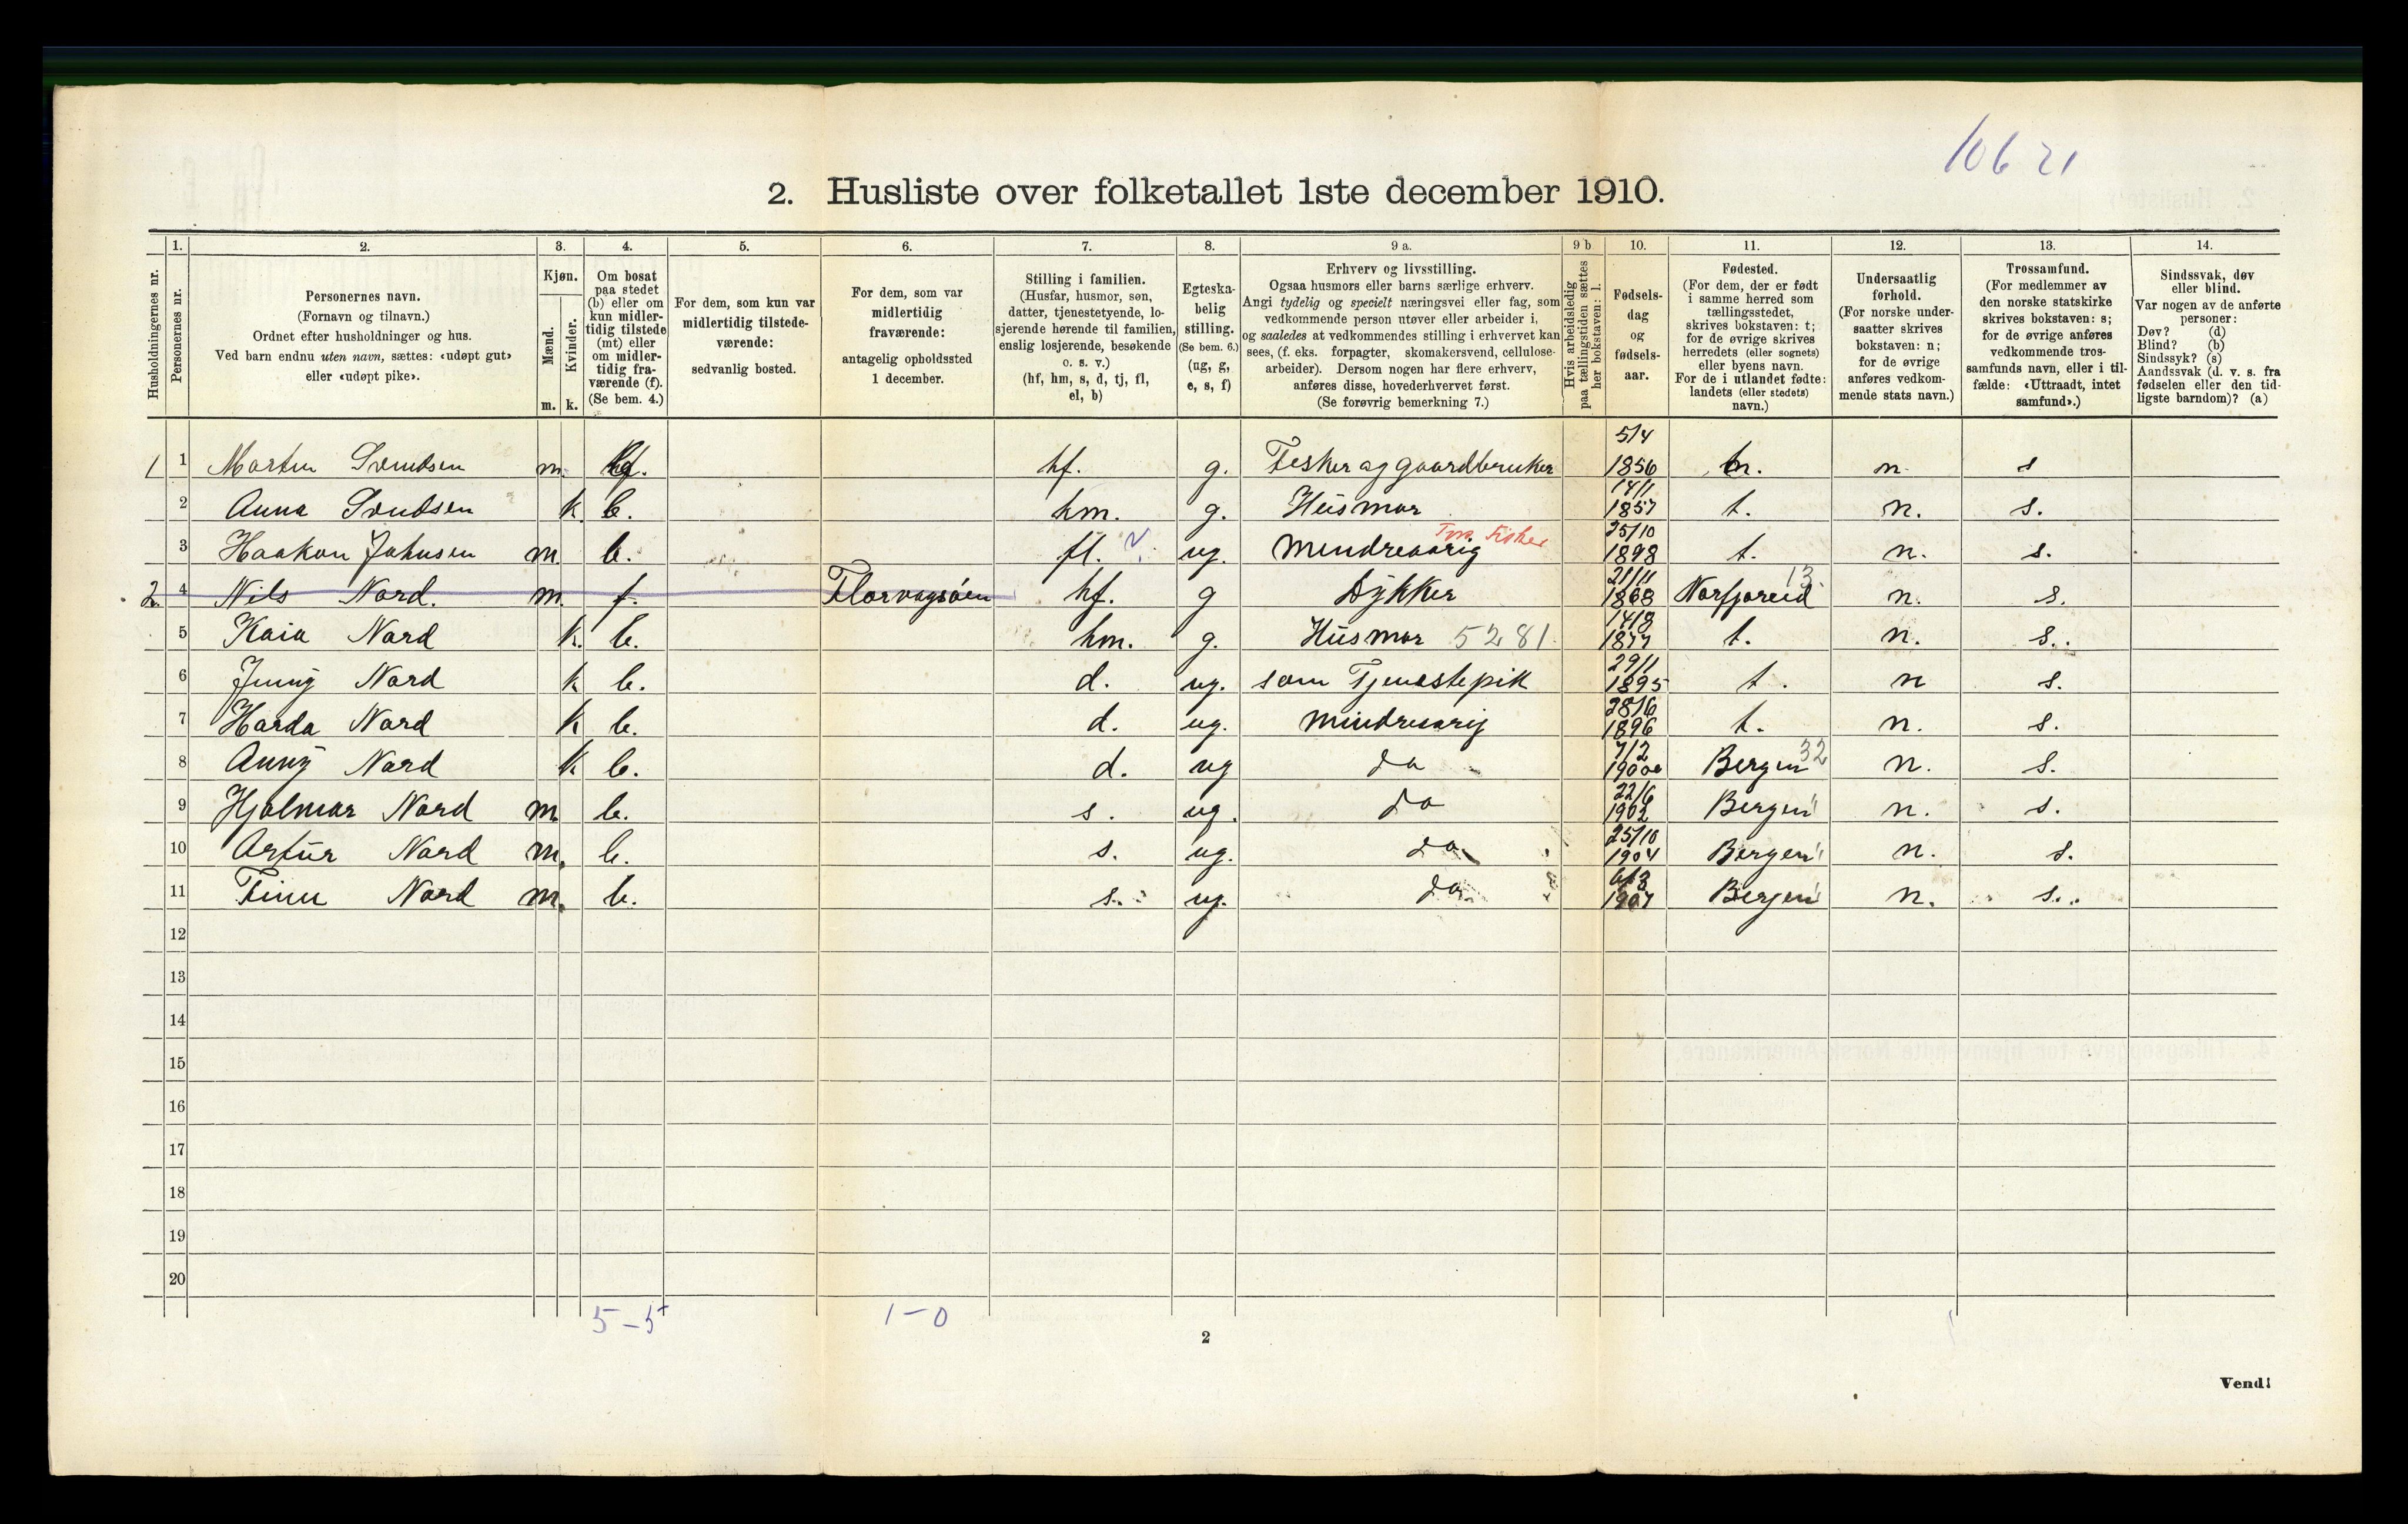 10621
2. Husliste over folketallet 1ste december 1910.
Husholdningernes nr.
1. Personernes nr.
2. Personernes navn.
(Fornavn og tilnavn.)
Ordnet efter husholdninger og hus.
Ved barn endnu uten navn, sættes: «udøpt gut»
eller «udøpt pike».
3. Kjøn.
Mænd. m.
Kvinder. k.
4. Om bosat
paa stedet
(b) eller om
kun midler-
tidig tilstede
(mt) eller
om midler-
tidig fra-
værende (f).
(Se bem. 4.)
5. For dem, som kun var
midlertidig tilstede-
værende:
sedvanlig bosted.
6. For dem, som var
midlertidig
fraværende:
antagelig opholdssted
1 december.
7. Stilling i familien.
(Husfar, husmor, søn,
datter, tjenestetyende, lo-
sjerende hørende til familien,
enslig losjerende, besøkende
o. s. v.)
(hf, hm, s, d, tj, fl,
el, b)
8. Egteska-
belig
stilling.
(Se bem. 6.)
(ug, g,
e, s, f)
9 a. Erhverv og livsstilling.
Ogsaa husmors eller barns særlige erhverv.
Angi tydelig og specielt næringsvei eller fag, som
vedkommende person utøver eller arbeider i,
og saaledes at vedkommendes stilling i erhvervet kan
sees, (f. eks. forpagter, skomakersvend, cellulose-
arbeider). Dersom nogen har flere erhverv,
anføres disse, hovederhvervet først.
(Se forøvrig bemerkning 7.)
9 b Hvis arbeidsledig
paa tællingstiden sættes
her bokstaven: l.
10. Fødsels-
dag
og
fødsels-
aar.
11. Fødested.
(For dem, der er født
i samme herred som
tællingsstedet,
skrives bokstaven: t;
for de øvrige skrives
herredets (eller sognets)
eller byens navn.
For de i utlandet fødte:
landets (eller stedets)
navn.)
12. Undersaatlig
forhold.
(For norske under-
saatter skrives
bokstaven: n;
for de øvrige
anføres vedkom-
mende stats navn.)
13. Trossamfund.
(For medlemmer av
den norske statskirke
skrives bokstaven: s;
for de øvrige anføres
vedkommende tros-
samfunds navn, eller i til-
fælde: «Uttraadt, intet
samfund».)
14. Sindssvak, døv
eller blind.
Var nogen av de anførte
personer:
Døv? (d)
Blind? (b)
Sindssyk? (s)
Aandssvak (d. v. s. fra
fødselen eller den tid-
ligste barndom)? (a)
1 1 Martin Svendsen m. hf. g. Fisker og gaardbruker 5/4 1856 n. s
2 Anna Svendsen k. b. hm. g. Husmor 14/1 1857 t. n. s.
3 Haakon Johnsen m. b. fl. ug. Mindreaarig Fisker 25/10 1898 t. n. s.
2. 4 Nils Nord. m. f. Florvagsöen hf. g Dykker 21/11 1868 Norfjoreid 13. n. s.
5 Kaia Nord k. b. hm. g. Husmor 5281 14/8 1877 t. n. s.
6 Jenny Nord k b. d. ug. som Tjenestepik 29/1 1895 t. n s.
7 Harda Nord k b. d. ug. Mindreaarig 28/6 1896 t. n. s.
8 Anny Nord k b. d. ug do 7/2 1900 Bergen 32 n. s.
9 Hjalmar Nord m. b. s. ug. do 22/6 1902 Bergen " n. s.
10 Artur Nord m. b. s. ug. do 25/10 1904 Bergen " n. s.
11 Finn Nord m. b. s. ug. do 1907 Bergen " n. s.
12
13
14
15
16
17
18
19
20
5-5 1-0
2
Vend!